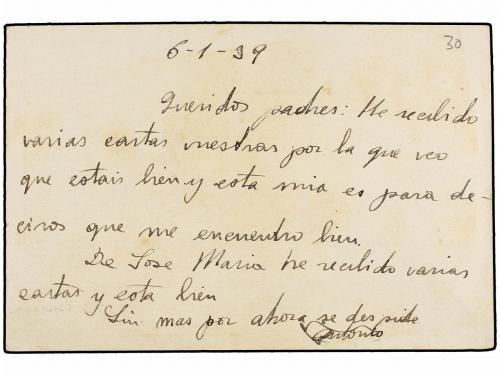 30
6-1-39
Queridos padres: He recibido
varias cartas vuestras por la que veo
que estais bien y esta mia es para de-
ciros que me encuentro bien.
De Jose Maria he recibido varias
cartas y esta bien
Sin mas por ahora se despide
Antonio